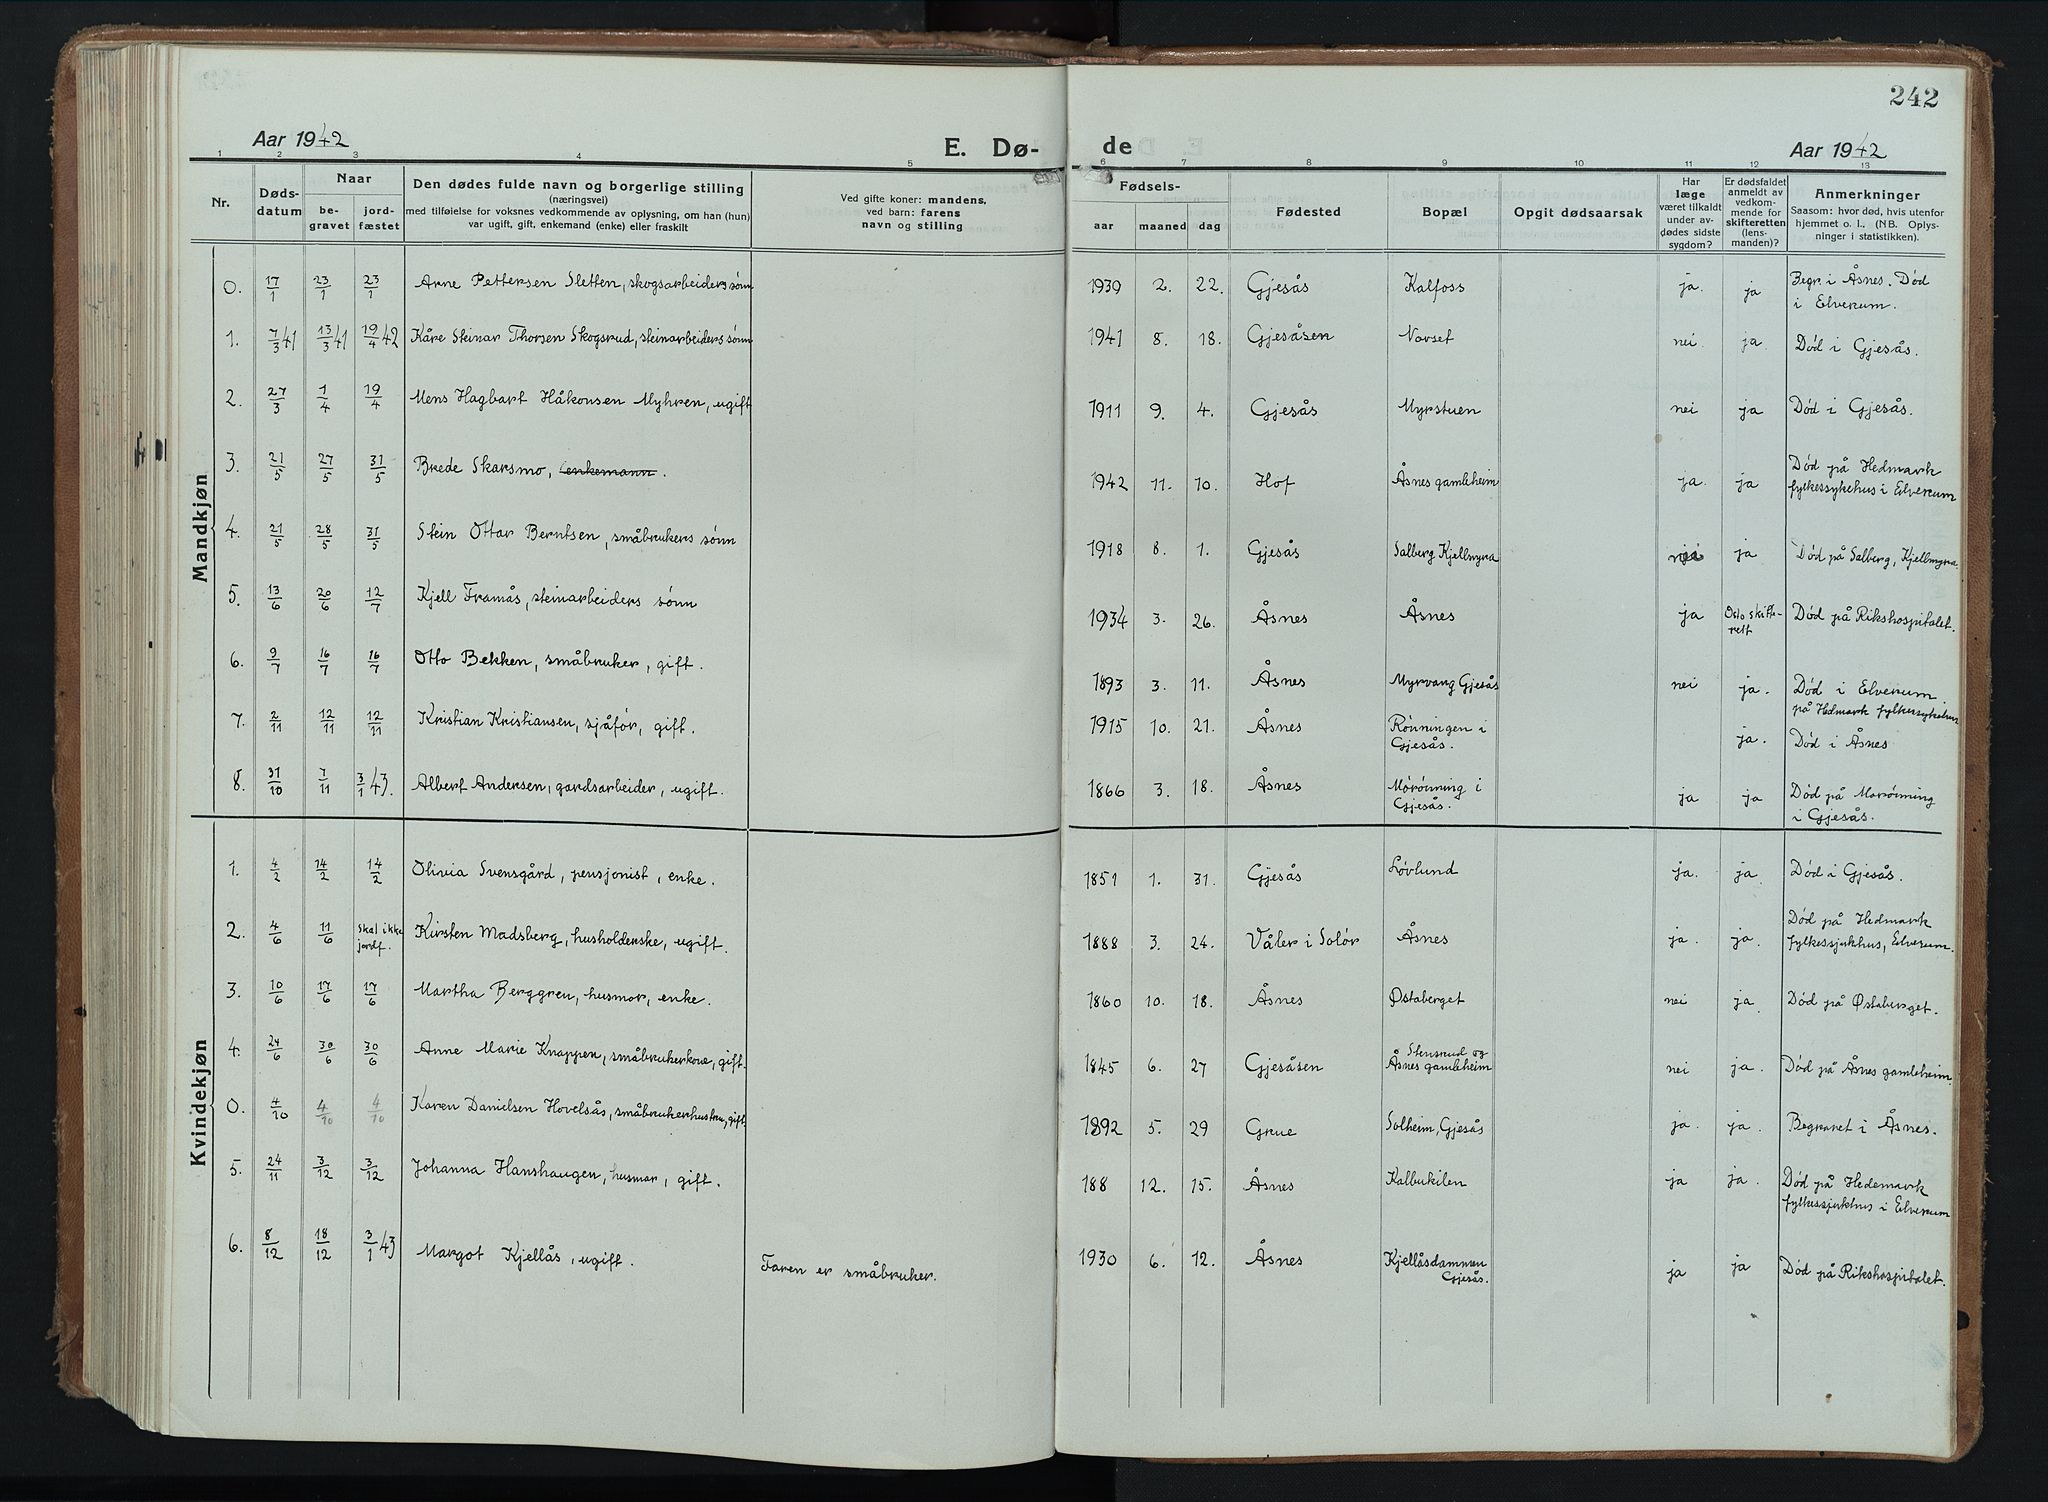 242
Aar 1942 E. Dø- de Aar 1942
1 2 3 4 5 6 7 8 9 10 11 12 13
Nr. Døds-datum Naar be-gravet jord-fæstet Den dødes fulde navn og borgerlige stilling (næringsvei) med tilføielse for voksnes vedkommende av oplysning, om han (hun) var ugift, gift, enkemand (enke) eller fraskilt Ved gifte koner: mandens, ved barn: farens navn og stilling Fødsels- aar maaned dag Fødested Bopæl Opgit dødsaarsak Har læge været tilkaldt under av-dødes sidste sygdom? Er dødsfaldet anmeldt av vedkom-mende for skifteretten (lens-manden)? Anmerkninger Saasom: hvor død, hvis utenfor hjemmet o. l., (NB. Oplys-ninger i statistikken).
Mandkjøn
0. 17/1 23/1 23/1 Arne Pettersen Sletten, skogsarbeiders sønn 1939 2. 22. Gjesås Kalfoss ja. ja Begr. i Åsnes. Død i Elverum.
1. 7/3 41 13/3 41 19/4 42 Kåre Steinar Thorsen Skogsrud, steinarbeiders sønn 1941 8. 18. Gjesåsen Norset nei. ja. Død i Gjesås.
2. 27/3 1/4 19/4 Mens Hagbart Håkonsen Myhren, ugift 1911 9. 4. Gjesås Myrstuen nei ja Død i Gjesås.
3. 21/5 27/5 31/5 Brede Skarsmo, enkemann. 1942 11. 10. Hof Åsnes gamleheim ja. ja Død på Hedmark fylkessykehus i Elverum
4. 21/5 28/5 31/5 Stein Ottar Berntsen, småbrukers sønn 1918 8. 1. Gjesås Salberg Kjellmyra nei ja Død på Salberg, Kjellmyra.
5. 13/6 20/6 12/7 Kjell Framås, steinarbeiders sønn 1934 3. 26. Åsnes Åsnes ja Oslo skifte-rett Død på Rikshospitalet.
6. 9/7 16/7 16/7 Otto Bekken, småbruker, gift. 1893 3. 11. Åsnes Myrvang Gjesås nei ja. Død i Elverum på Hedmark fylkessykehus
7. 2/11 12/11 12/11 Kristian Kristiansen, sjåfør, gift. 1915 10. 21. Åsnes Rønningen i Gjesås. ja. Død i Åsnes
8. 31/10 7/11 3/1 43. Albert Andersen, gardsarbeider, ugift. 1866 3. 18. Åsnes Mørønning i Gjesås. ja ja Død på Morønning i Gjesås.
Kvindekjøn
1. 4/2 14/2 14/2 Olivia Svensgård, pensjonist, enke. 1851 1. 31. Gjesås Løvlund ja. ja Død i Gjesås.
2. 4/6 11/6 Skal ikke jordf. Kirsten Madsberg, husholderske, ugift. 1888 3. 24. Våler i Solør Åsnes ja. ja. Død på Hedmark fylkessjukhus, Elverum.
3. 10/6 17/6 17/6 Martha Berggren, husmor, enke. 1860 10. 18. Åsnes Østaberget nei ja. Død på Østaberget.
4. 24/6 30/6 30/6 Anne Marie Knappen, småbrukerkone, gift. 1845 6. 27 Gjesåsen Stensrud og Åsnes gamleheim nei ja. Død på Åsnes gamleheim.
0. 4/10 4/10 4/10 Karen Danielsen Hovelsås, småbrukerhustru, gift. 1892 5. 29 Grue Solheim, Gjesås ja. ja. Begravet i Åsnes.
5. 24/11 3/12 3/12 Johanna Hanshaugen, husmor, gift. 188 12. 15. Åsnes Kalbukilen ja ja. Død på Hedemark fylkessjukhus i Elverum
6. 8/12 18/12 3/1 43 Margot Kjellås, ugift. Faren er småbruker. 1930 6. 12. Åsnes Kjellåsdammen Gjesås. ja ja Død på Rikshospitalet.